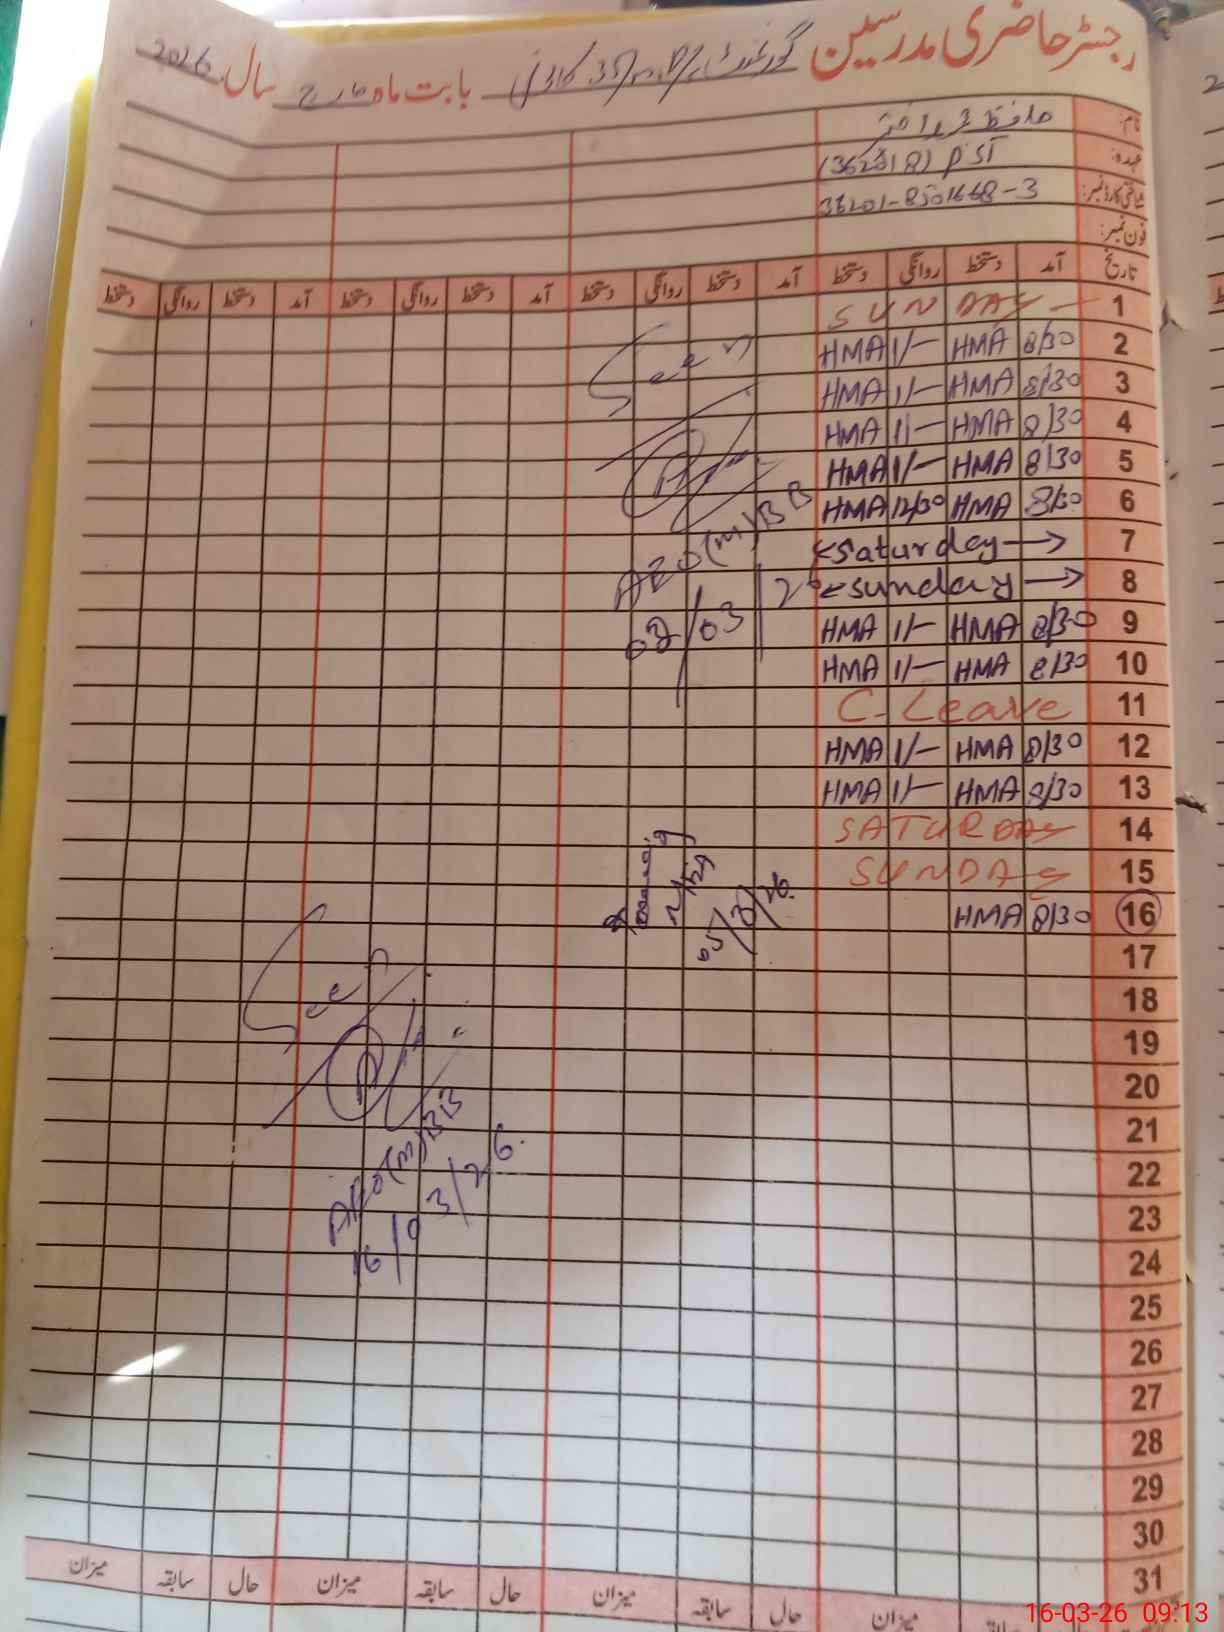 رجسٹر حاضری مدرسین گورنمنٹ بابت ماہ مارچ سال 2026
نام:
عہدہ: PST
شناختی کارڈ نمبر:
فون نمبر:
تاریخ آمد دستخط روانگی دستخط آمد دستخط روانگی دستخط آمد دستخط روانگی دستخط آمد دستخط روانگی دستخط
1 SUNDAY
2 8/30 HMA 1/— HMA
3 8/30 HMA 1/— HMA
4 8/30 HMA 1/— HMA
5 8/30 HMA 1/— HMA
6 8/30 HMA 12/30 HMA
7 Saturday
8 Sunday
9 8/30 HMA 1/— HMA
10 8/30 HMA 1/— HMA
11 C-Leave
12 8/30 HMA 1/— HMA
13 8/30 HMA 1/— HMA
14 SATURDAY
15 SUNDAY
16 8/30 HMA
17
18
19
20
21
22
23
24
25
26
27
28
29
30
31
Seen
AEO(M)BB
02/03/26
05/3/26
Seen
AEO(M)BB
16/03/26
میزان حال سابقہ میزان حال سابقہ میزان حال سابقہ میزان
16-03-26 09:13